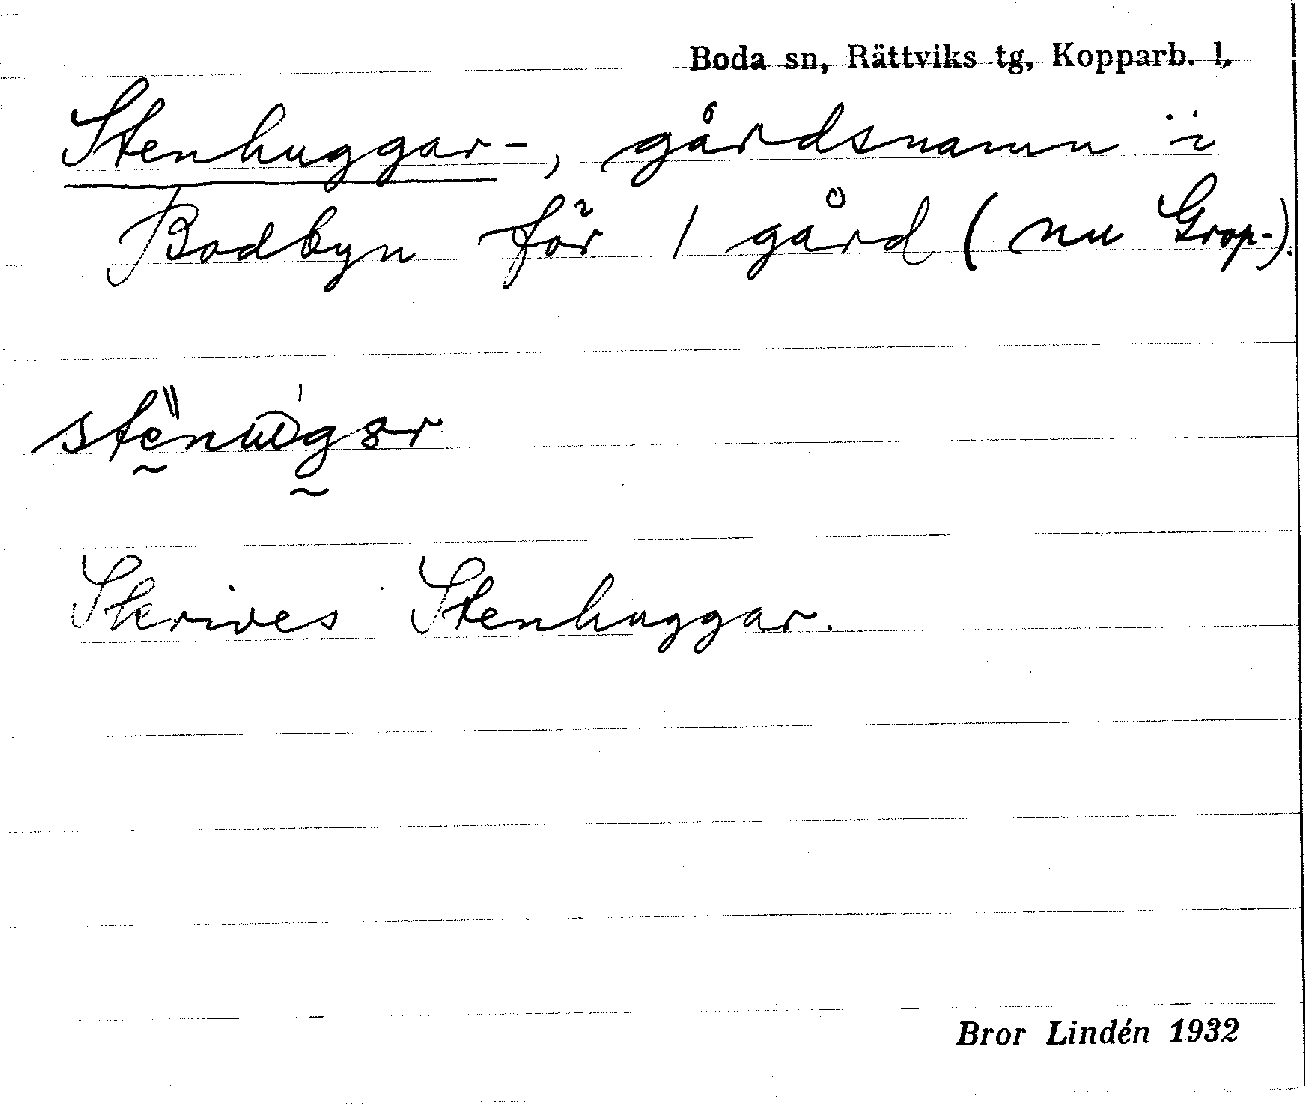 Boda sn, Rättviks tg, Kopparb. l,
Stenhuggar-, gårdsnamn i
Bodbyn för 1 gård (nu Grop-).
Skrives Stenhuggar.
Bror Lindén 1932